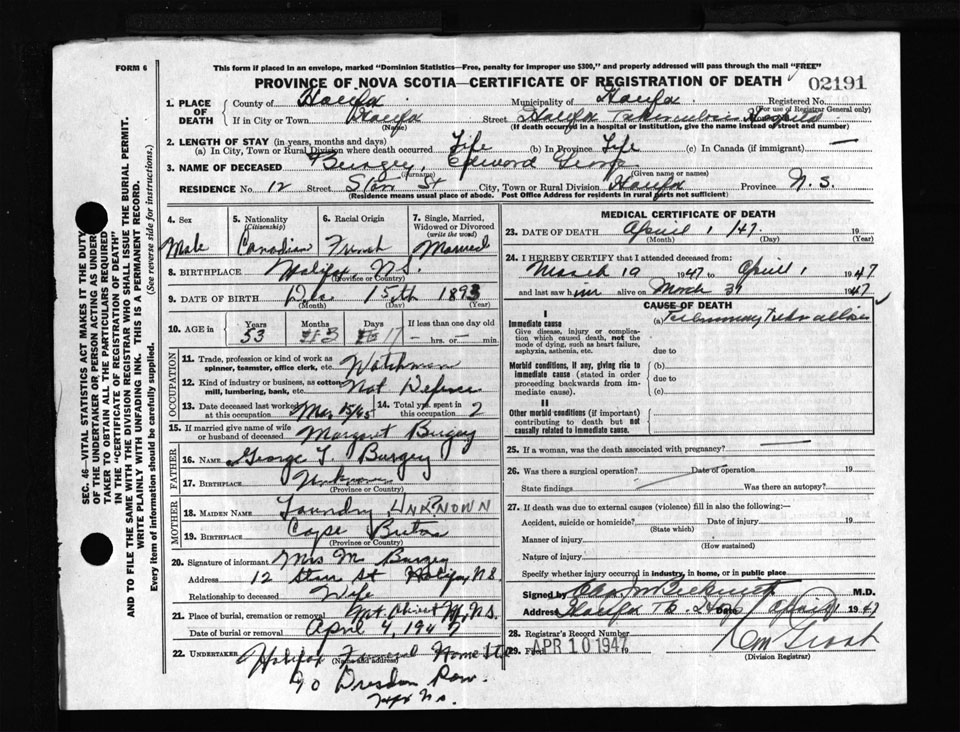 FORM 6
This form if placed in an envelope, marked "Dominion Statistics—Free, penalty for improper use $300," and properly addressed will pass through the mail "FREE"
PROVINCE OF NOVA SCOTIA—CERTIFICATE OF REGISTRATION OF DEATH 02191
1. PLACE OF DEATH
County of Halifax Municipality of Halifax Registered No.
(For use of Registrar General only)
If in City or Town Halifax Street Halifax Tuberculosis Hospital
(Name) (If death occurred in a hospital or institution, give the name instead of street and number)
2. LENGTH OF STAY (in years, months and days)
(a) In City, Town or Rural Division where death occurred Life (b) In Province Life (c) In Canada (if immigrant) —
3. NAME OF DECEASED Burgey, Edward George
(Surname) (Given name or names)
RESIDENCE No. 12 Street Starr St City, Town or Rural Division Halifax Province N. S.
(Residence means usual place of abode. Post Office Address for residents in rural parts not sufficient)
4. Sex
Male
5. Nationality
(Citizenship)
Canadian
6. Racial Origin
French
7. Single, Married, Widowed or Divorced
(write the word)
Married
8. BIRTHPLACE Halifax, N.S.
(Province or Country)
9. DATE OF BIRTH Dec. 15th 1893
(Month) (Day) (Year)
10. AGE in Years Months Days If less than one day
53 3 17 — hrs. or — min.
OCCUPATION
11. Trade, profession or kind of work as spinner, teamster, office clerk, etc. Watchman
12. Kind of industry or business, as cotton mill, lumbering, bank, etc. Nat Defence
13. Date deceased last worked at this occupation Mar 15/45 14. Total yrs. spent in this occupation 2
15. If married give name of wife or husband of deceased Margaret Burgey
FATHER
16. NAME George T Burgey
17. BIRTHPLACE Unknown
(Province or Country)
MOTHER
18. MAIDEN NAME Laundry, UNKNOWN
19. BIRTHPLACE Cape Breton
(Province or Country)
20. Signature of informant Mrs M Burgey
Address 12 Starr St Halifax, N.S.
Relationship to deceased Wife
21. Place of burial, cremation or removal Mt. Olivet Hfx, N.S.
Date of burial or removal April 4, 1947
22. UNDERTAKER Halifax Funeral Home Ltd
(Name and address)
90 Dresden Row.
Hfx N.S.
MEDICAL CERTIFICATE OF DEATH
23. DATE OF DEATH April 1/47. 19
(Month) (Day) (Year)
24. I HEREBY CERTIFY that I attended deceased from:
March 19 1947 to April 1, 1947
and last saw him alive on March 31 1947
CAUSE OF DEATH
I
Immediate cause
Give disease, injury or complication which caused death, not the mode of dying, such as heart failure, asphyxia, asthenia, etc.
(a) Pulmonary Tuberculosis
due to
Morbid conditions, if any, giving rise to immediate cause (stated in order proceeding backwards from immediate cause).
(b)
due to
(c)
II
Other morbid conditions (if important) contributing to death but not causally related to immediate cause.
25. If a woman, was the death associated with pregnancy?
26. Was there a surgical operation? Date of operation 19
State findings Was there an autopsy?
27. If death was due to external causes (violence) fill in also the following:—
Accident, suicide or homicide? Date of injury 19
(State which)
Manner of injury
(How sustained)
Nature of injury
Specify whether injury occurred in industry, in home, or in public place
Signed by M.D.
Address Halifax T.B. Date April 1 1947
28. Registrar's Record Number
29. Filed APR 10 1947 19
(Division Registrar)
SEC. 46—VITAL STATISTICS ACT MAKES IT THE DUTY OF THE UNDERTAKER OR PERSON ACTING AS UNDERTAKER TO OBTAIN ALL THE PARTICULARS REQUIRED IN THE "CERTIFICATE OF REGISTRATION OF DEATH" AND TO FILE THE SAME WITH THE DIVISION REGISTRAR WHO SHALL ISSUE THE BURIAL PERMIT.
WRITE PLAINLY WITH UNFADING INK. THIS IS A PERMANENT RECORD.
Every item of information should be carefully supplied. (See reverse side for instructions.)